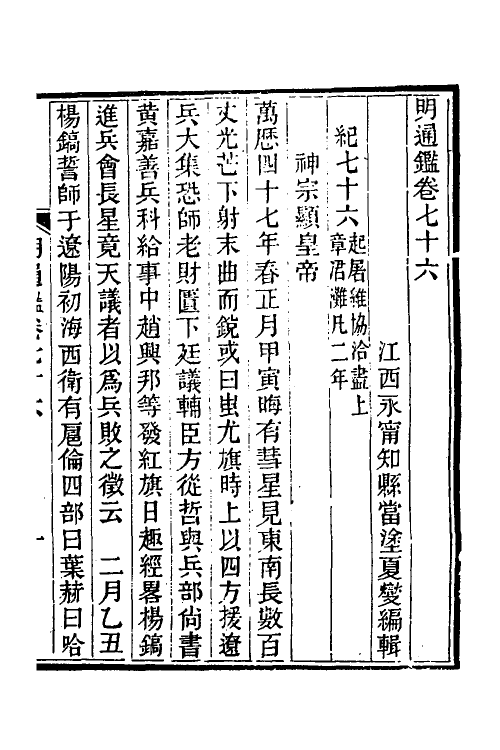 明通鑑卷七十六
江西永甯知縣當塗夏燮編輯
紀七十六起屠維協洽盡上章涒灘凡二年
神宗顯皇帝
萬歷四十七年春正月甲寅晦有彗星見東南長數百
丈光芒下射末曲而銳或曰蚩尤旗時上以四方援遼
兵大集恐師老財匱下廷議輔臣方從哲與兵部尙書
黃嘉善兵科給事中趙興邦等發紅旗日趣經畧楊鎬
進兵會長星竟天議者以爲兵敗之徵云　二月乙丑
楊鎬誓師于遼陽初海西衛有扈倫四部曰葉赫曰哈
明通鑑卷七十六
一